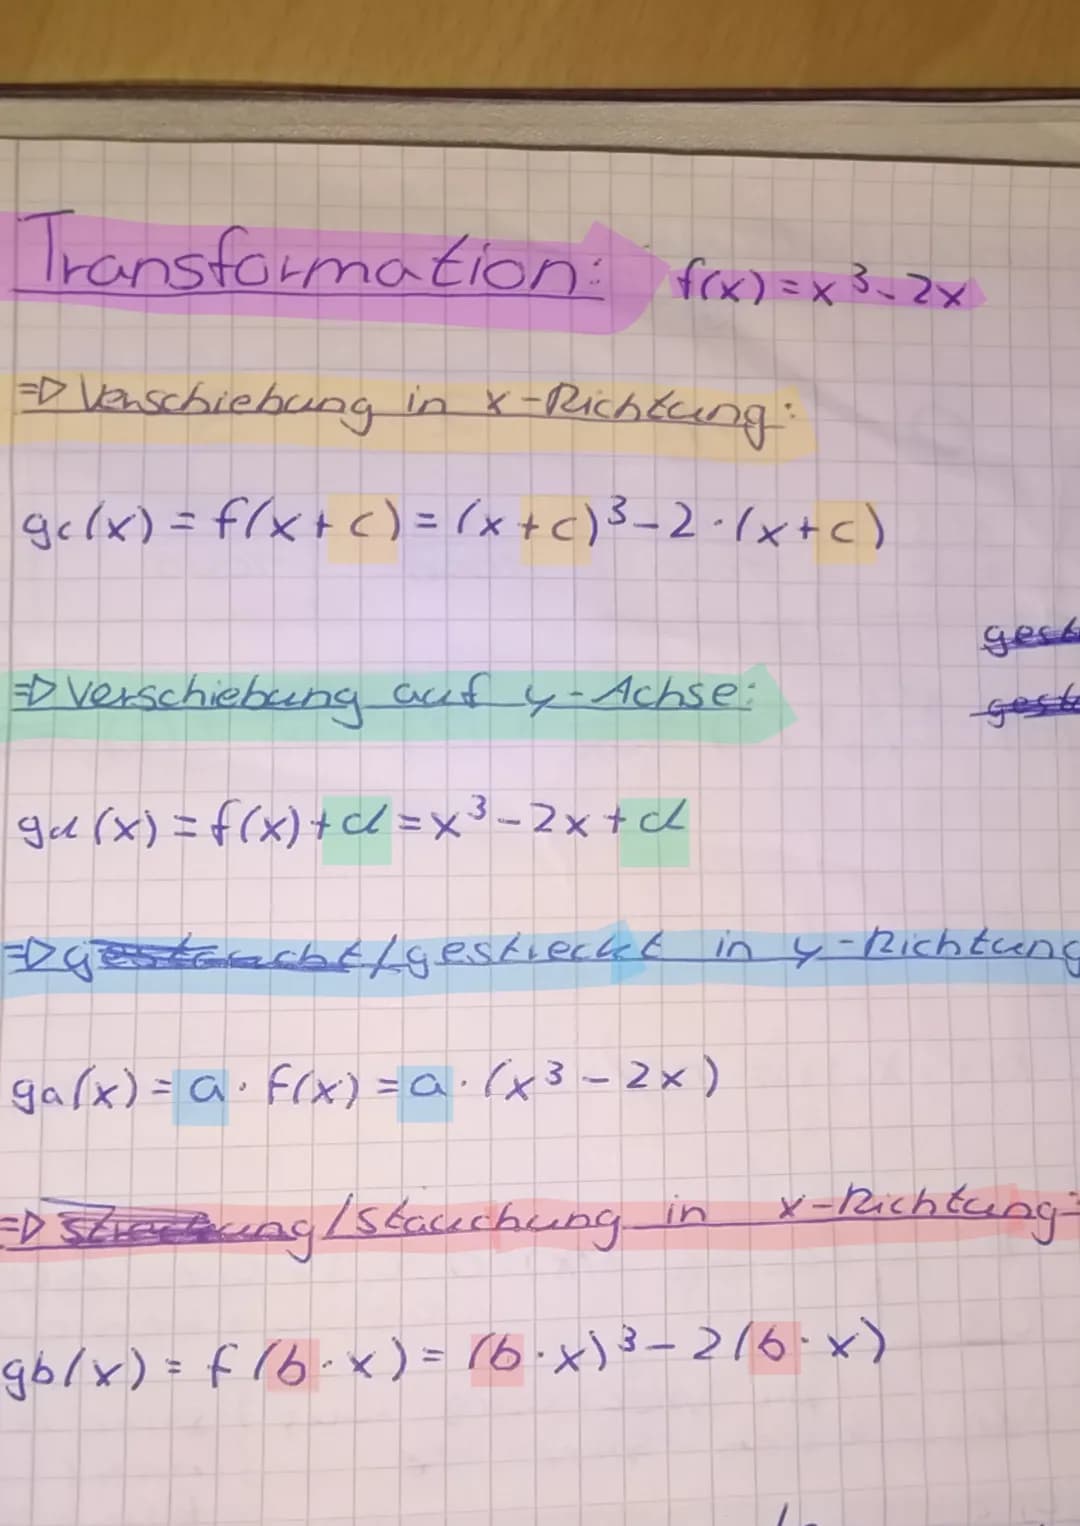 Transformation: f(x) = x³ - 2x
=> Verschiebung in x-Richtung:
gc(x) = f(x + c) = (x + c)³ - 2 · (x + c)
=> Verschiebung auf y-Achse:
gd(x) = f(x) + d = x³ - 2x + d
=> gestaucht/gestreckt in y-Richtung
ga(x) = a · f(x) = a · (x³ - 2x)
=> Streckung/Stauchung in x-Richtung:
gb(x) = f(b · x) = (b · x)³ - 2(b · x)